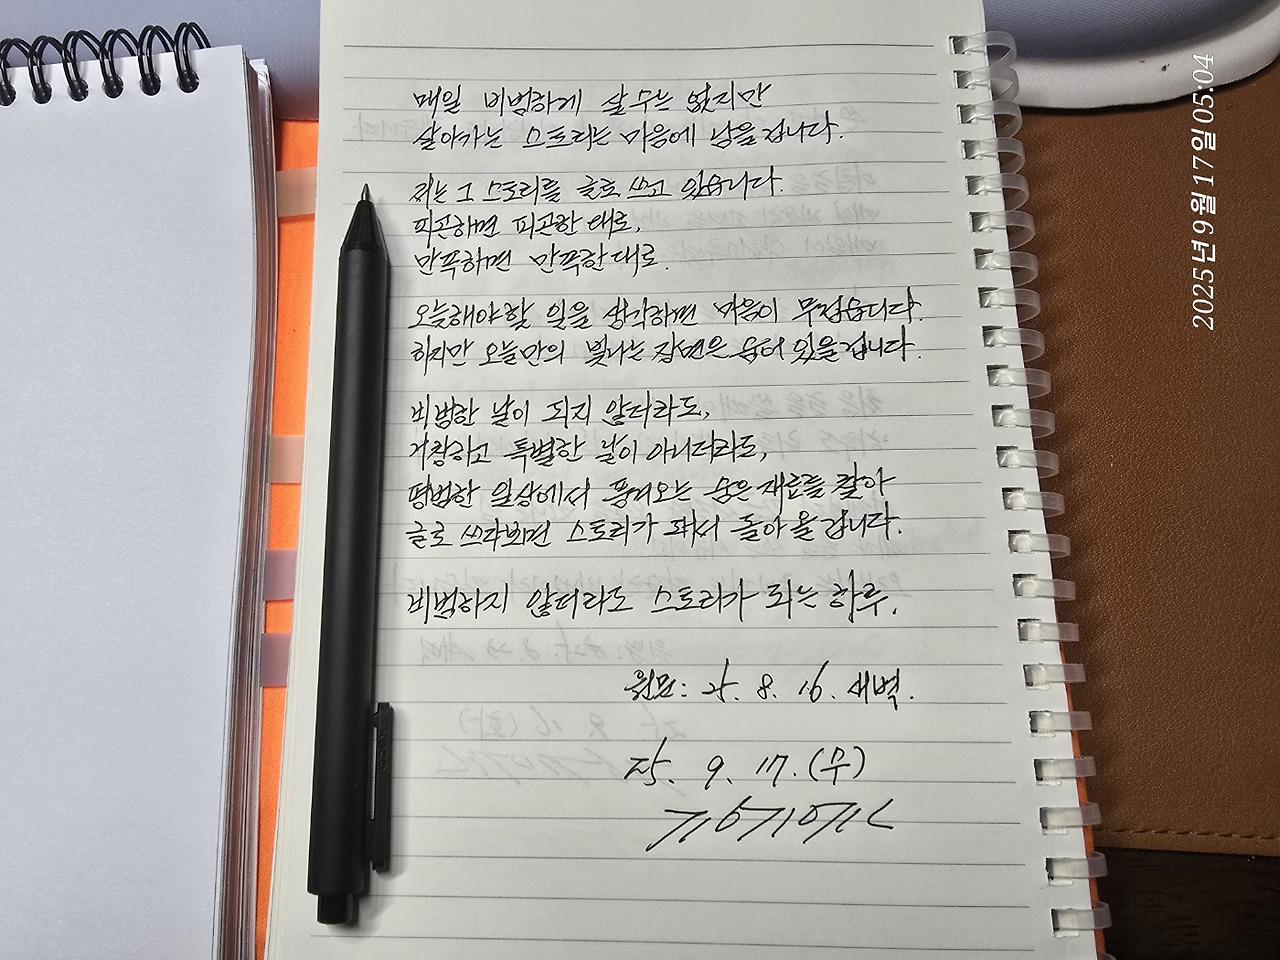 매일 비범하게 살 수는 없지만
살아가는 스토리는 마음에 남을 겁니다.
저는 그 스토리를 글로 쓰고 있습니다.
피곤하면 피곤한 대로,
만족하면 만족한 대로.
오늘 해야 할 일을 생각하면 마음이 무겁습니다.
하지만 오늘만의 빛나는 장면은 숨어 있을 겁니다.
비범한 날이 되지 않더라도,
거창하고 특별한 날이 아니더라도,
평범한 일상에서 품어오는 숨은 재료를 찾아
글로 쓰다보면 스토리가 되서 돌아올 겁니다.
비범하지 않더라도 스토리가 되는 하루.
원문: 25. 8. 16. 새벽.
25. 9. 17. (수)
2025년 9월 17일 05:04